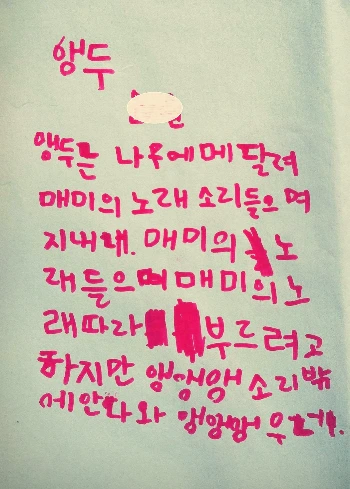 앵두
앵두는 나무에 메달려
매미의 노래 소리들으며
지내대. 매미의 노
래들으며 매미의 노
래따라 부드려고
하지만 앵앵앵 소리밖
에 안나와 앵앵앵 우